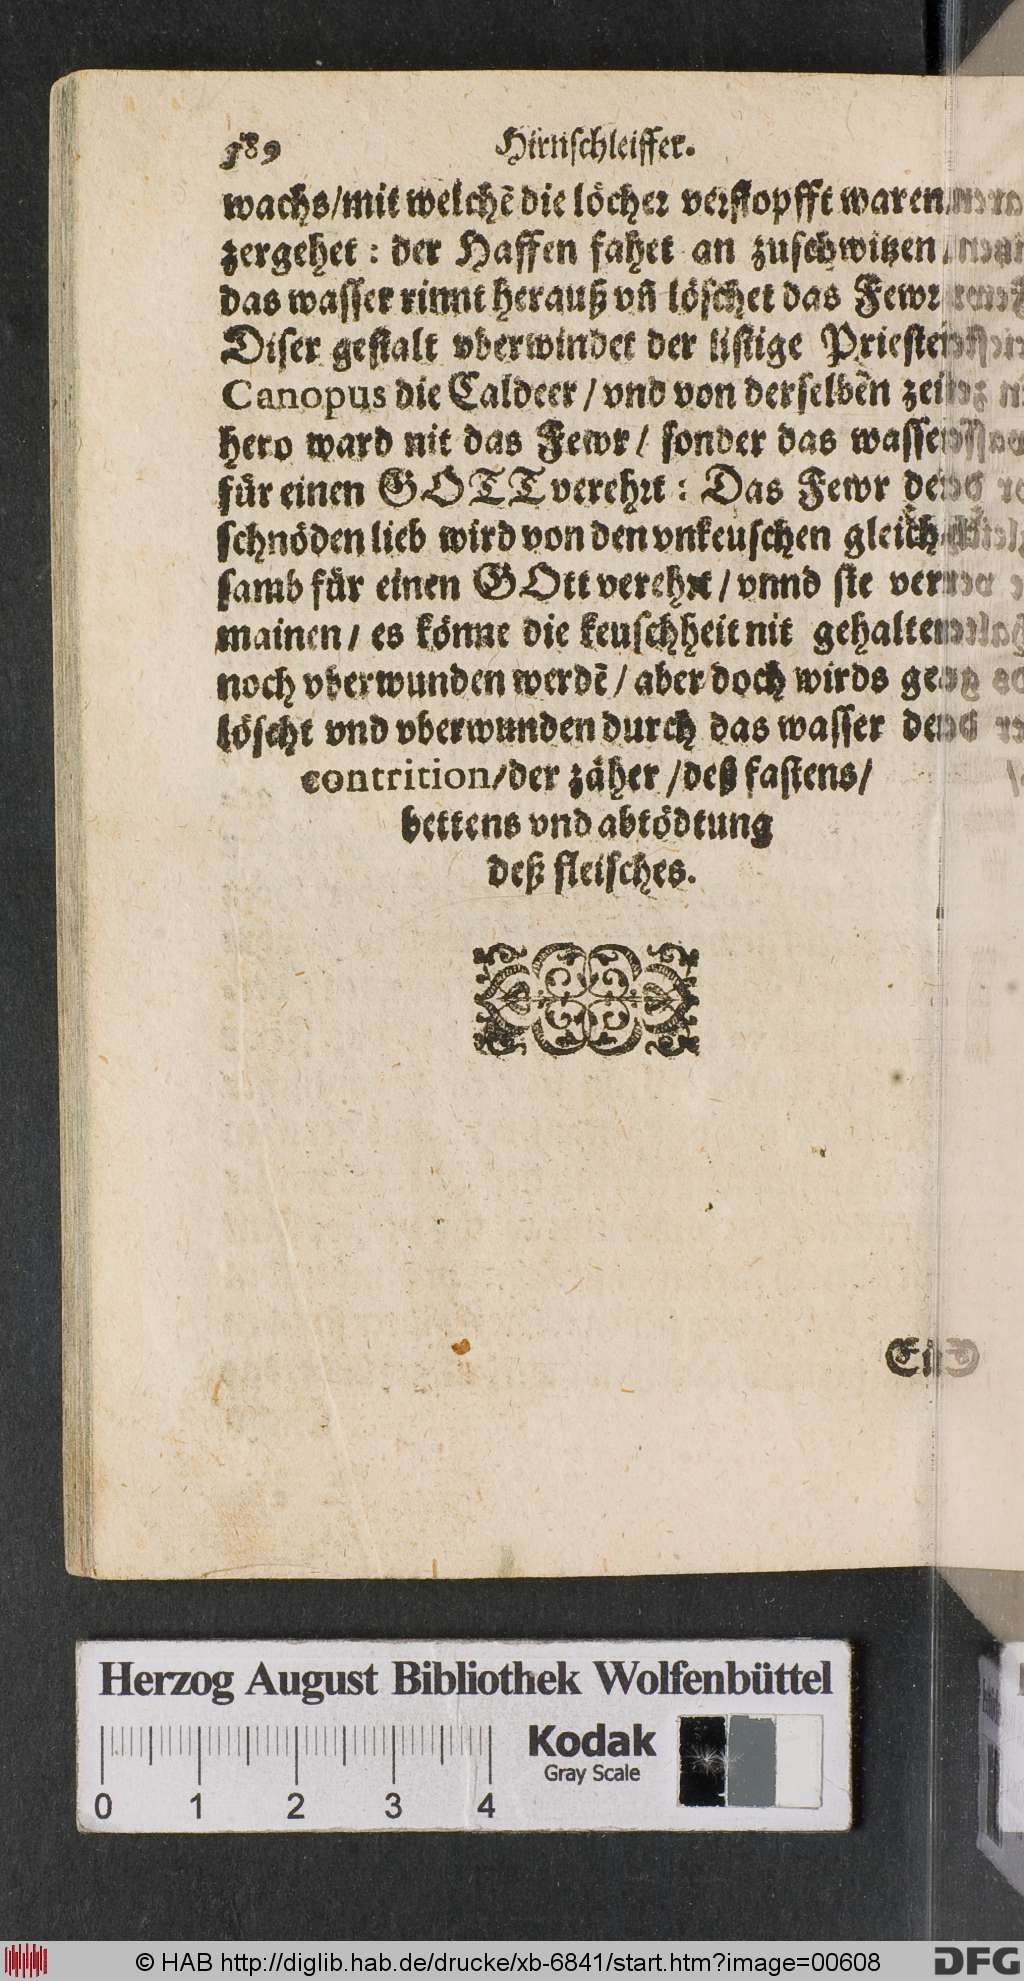 189 Hirnschleiffer.
wachs/mit welchẽ die löcher verstopfft waren
zergehet : der Haffen fahet an zuschwitzen,
das wasser rinnt herauß vñ löschet das Fewr
Diser gestalt vberwindet der listige Priester
Canopus die Caldeer / vnd von derselben zeit
hero ward nit das Fewr / sonder das wasser
für einen GOTT verehrt : Das Fewr der
schnöden lieb wird von den vnkeuschen gleich
samb für einen GOtt verehrt / vnnd sie ver
mainen / es könne die keuschheit nit gehalten
noch vberwunden werdẽ / aber doch wirds ge
löscht vnd vberwunden durch das wasser der
contrition/der zäher /deß fastens/
bettens vnd abtödtung
deß fleisches.
Herzog August Bibliothek Wolfenbüttel
Kodak
Gray Scale
0 1 2 3 4
© HAB http://diglib.hab.de/drucke/xb-6841/start.htm?image=00608
DFG